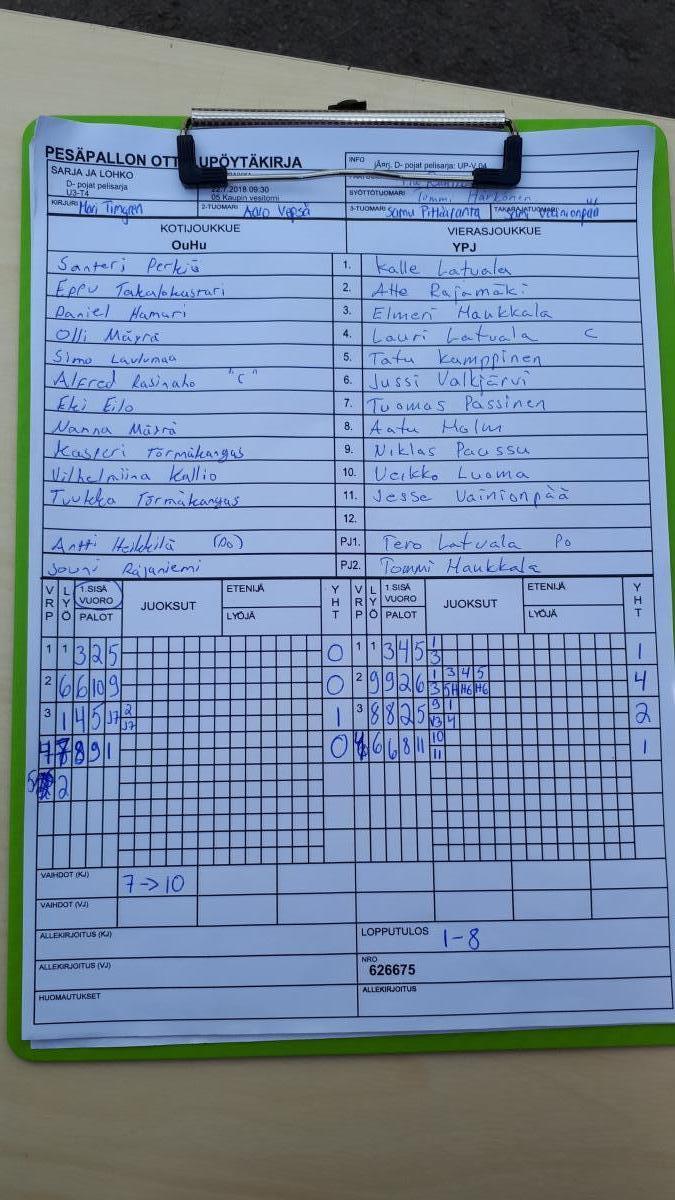 PESÄPALLON
INFO jÄrj. D- pojat pelisarja: UP-V 04
SARJA JA LOHKO
D- pojat pelisarja
U3-T4
22.7.2018 09:30
05 Kaupin vesitorni
SYÖTTÖTUOMARI Tommi Harkonen
KIRJURI Mari Timgren 2-TUOMARI Aaro Vepsä 3-TUOMARI Samu Pittäranta TAKARAJATUOMARI Sami Vainionpää
KOTIJOUKKUE VIERASJOUKKUE
OuHu YPJ
Santeri Perkiö 1. Kalle Latvala
Eppu 2. Atte Rajamäki
Daniel Hamari 3. Elmeri Haukkala
Olli Mäyrä 4. Lauri Latvala C
Simo 5. Tatu Kamppinen
Alfred Rasinaho "C" 6. Jussi Valkjärvi
Eki Eilo 7. Tuomas Passinen
Nanna Mäyrä 8. Aatu Holm
Kasperi Törmäkangas 9. Niklas Paussu
Vilhelmiina Kallio 10. Veikko Luoma
Tuukka Törmäkangas 11. Jesse Vainionpää
12.
Antti Heikkilä (PO) PJ1. Tero Latvala PO
Jouni Rajaniemi PJ2. Tommi Haukkala
VRP LYÖ 1.SISÄ VUORO PALOT JUOKSUT ETENIJÄ LYÖJÄ YHT VRP LYÖ 1.SISÄ VUORO PALOT JUOKSUT ETENIJÄ LYÖJÄ YHT
1 1 3 2 5 0 1 1 3 4 5 1 3 1
2 6 6 10 9 0 2 9 9 2 6 1 3 4 5 3 5H H6 H6 4
3 1 4 5 J7 2 J7 1 3 8 8 2 5 9 1 V3 4 2
8 9 1 0 6 6 8 11 10 11 1
5 2
VAIHDOT (KJ) 7->10
VAIHDOT (VJ)
ALLEKIRJOITUS (KJ) LOPPUTULOS 1-8
ALLEKIRJOITUS (VJ) NRO 626675
HUOMAUTUKSET ALLEKIRJOITUS